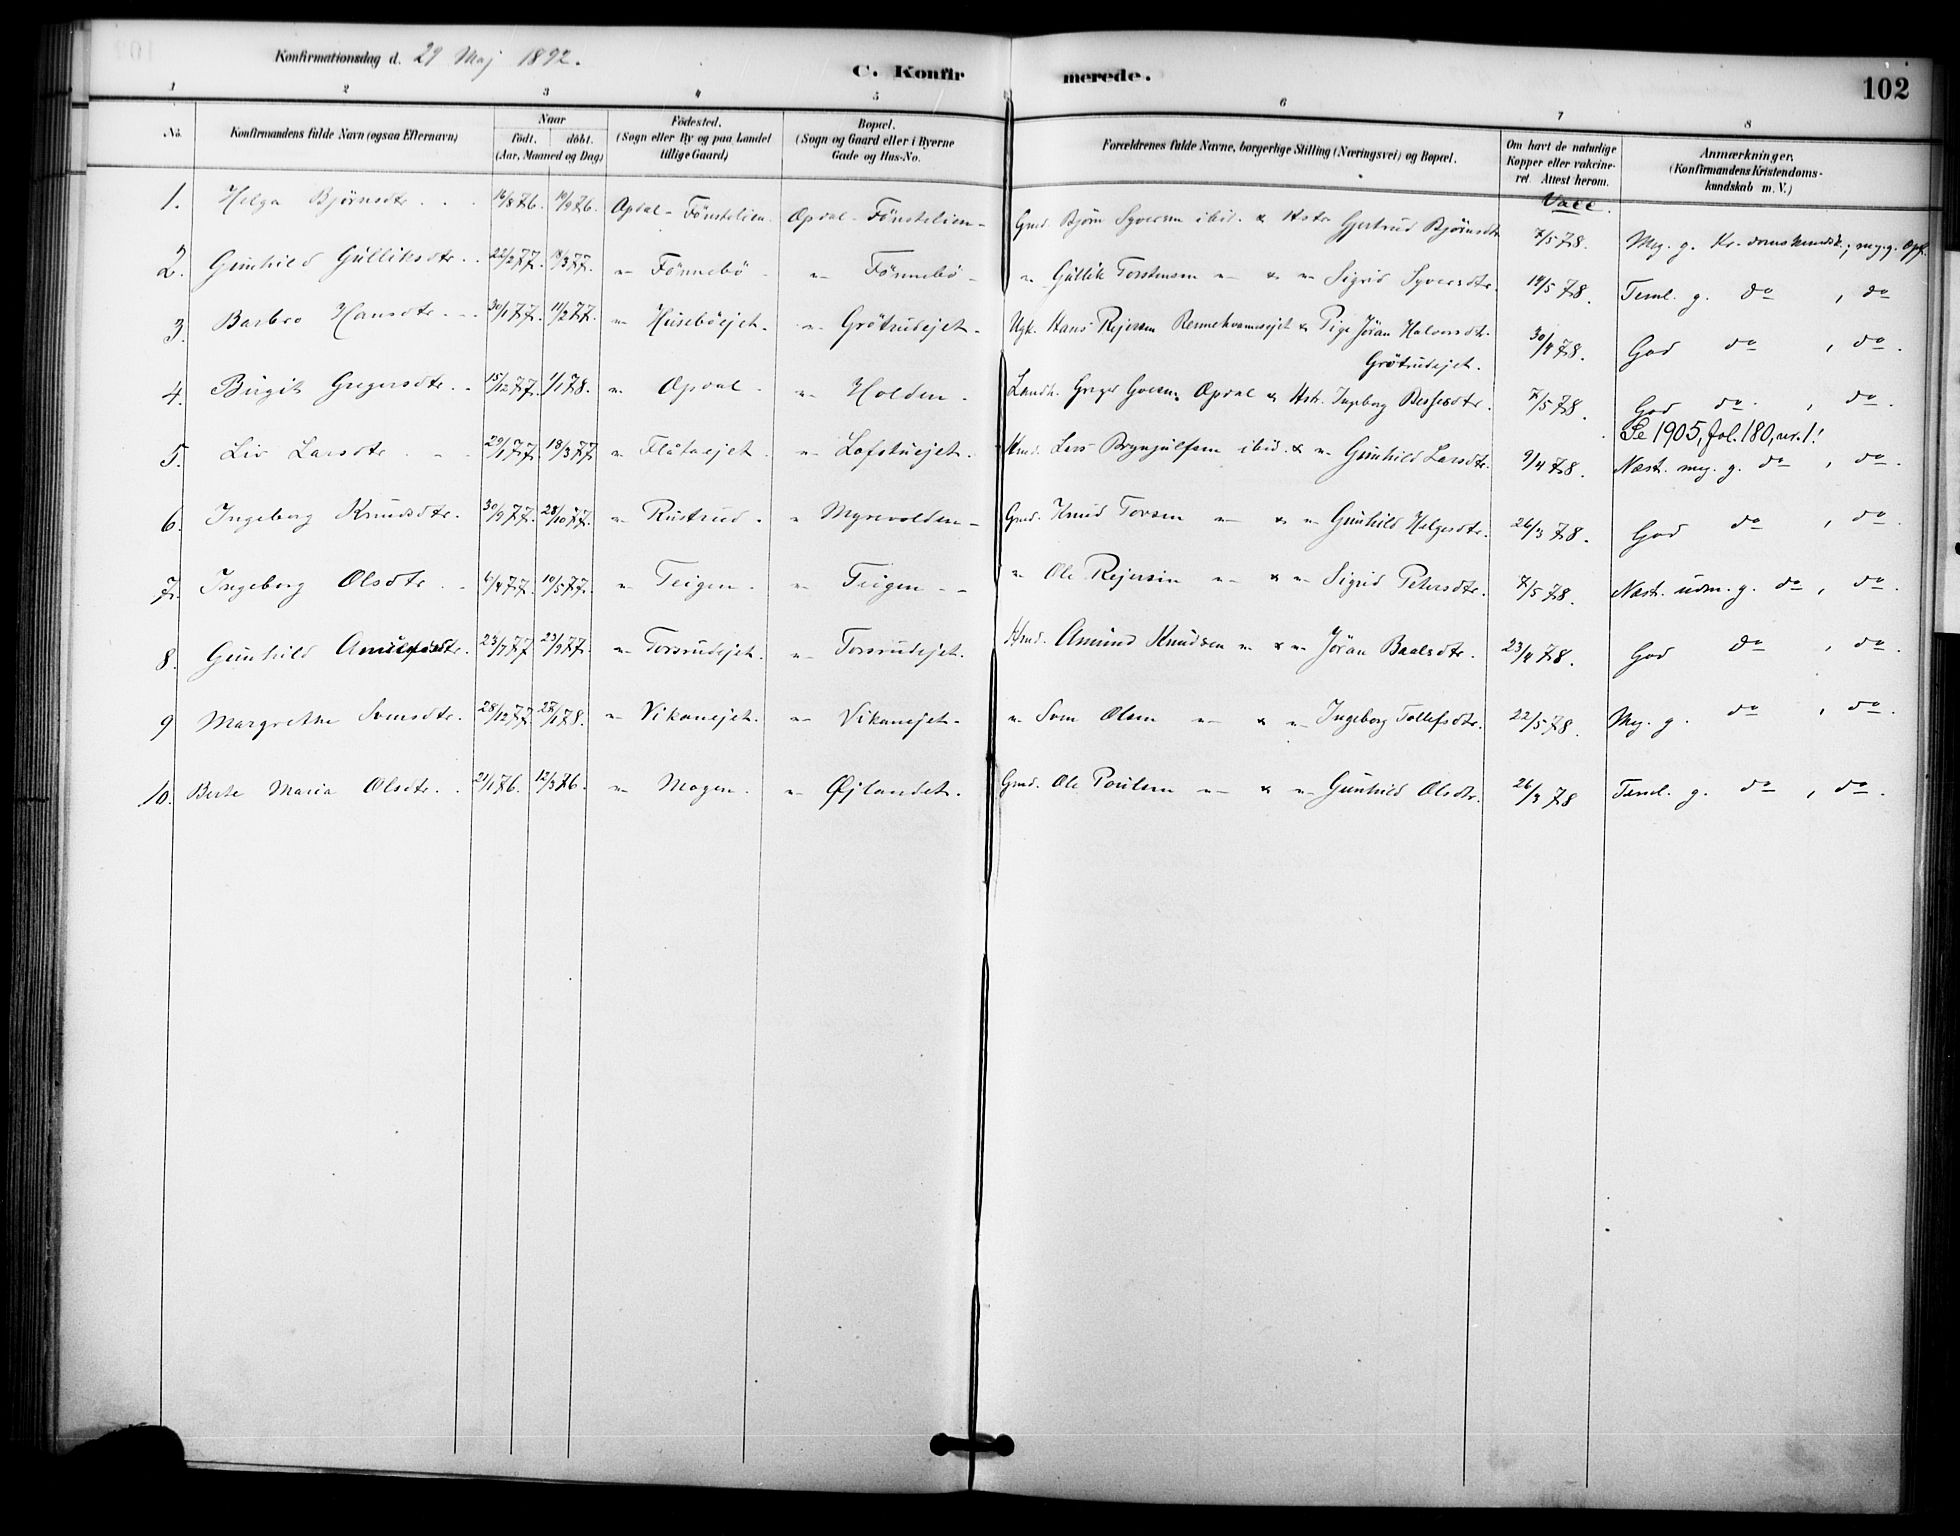 Konfirmationsdag d. 29 Maj 1892.
C. Konfirmerede.
102
1 2 3 4 5 6 7 8
No. Konfirmandens fulde Navn (ogsaa Efternavn) Naar født. døbt. (Aar, Maaned og Dag) Fødested. (Sogn eller By og paa Landet tillige Gaard) Bopæl. (Sogn og Gaard eller i Byerne Gade og Hus-No. Forældrenes fulde Navne, borgerlige Stilling (Næringsvei) og Bopæl. Om havt de naturlige Kopper eller vakcineret. Attest herom. Anmærkninger. (Konfirmandens Kristendomskundskab m. V.)
Vacc.
1. Helga Bjørnsdtr. 16/8 76. 10/9 76. Opdal - Fönstelien. Opdal - Fönstelien Gmd. Bjørn Syversen ibid. & Hstr Gjertrud Bjørnsdtr 7/5 78. Meg. g. Kr.domskundsk.; meg. g. Opf.
2. Gunhild Gulliksdtr. 22/2 77. 18/3 77. " Fönnebö " Fönnebö " Gullik Torstensen " & " Sigrid Syversdtr. 14/5 78. Teml. g. do, do
3. Barbro Hansdtr. 30/1 77. 11/2 77. " Husebøejet. " Grötrudejet. Ugk. Hans Rejersen Rennehvamsejet & Pige Jöran Halvorsdtr. Grötrudejet. 30/4 78. God do, do.
4. Birgit Gregersdtr. 15/12 77. 1/1 78. " Opdal " Holden. Landh. Greger Goersen Opdal & Hstr. Ingeborg Bessesdtr. 7/5 78. God do, do.
Se 1905, fol. 180, nr. 1!
5. Liv Larsdtr. 29/1 77. 18/3 77 " Flåtaejet. " Lofstuejet. Hmd. Lars Brynjulfsen ibid. & " Gunhild Larsdtr. 9/4 78. Næst. meg. g. do, do.
6. Ingeborg Knudsdtr. 30/9 77. 28/10 77. " Rustrud. " Myrevolden Gmd. Knud Torsen " & " Gunhild Helgesdtr. 26/3 78. God do, do.
7. Ingeborg Olsdtr. 6/4 77. 10/5 77. " Teigen. " Teigen " Ole Rejersen " & " Sigrid Petersdtr. 7/5 78. Næst. udm. g. do, do.
8. Gunhild Amundsdtr. 23/7 77 23/9 77. " Torsrudejet. " Torsrudejet. Hmd. Amund Knudsen " & " Jöran Baalsdtr. 23/4 78. God do, do.
9 Margrethe Svensdtr. 28/12 77. 27/1 78. " Vikanejet. " Vikanejet. " Sven Olsen " & " Ingeborg Tollefsdtr. 22/5 78. Meg. g. do, do.
10. Berte Maria Olsdtr. 21/1 76. 12/3 76. " Mogen. " Øjlandet. Gmd. Ole Poulsen " & " Gunhild Olsdtr. 26/3 78 Teml. g. do, do.